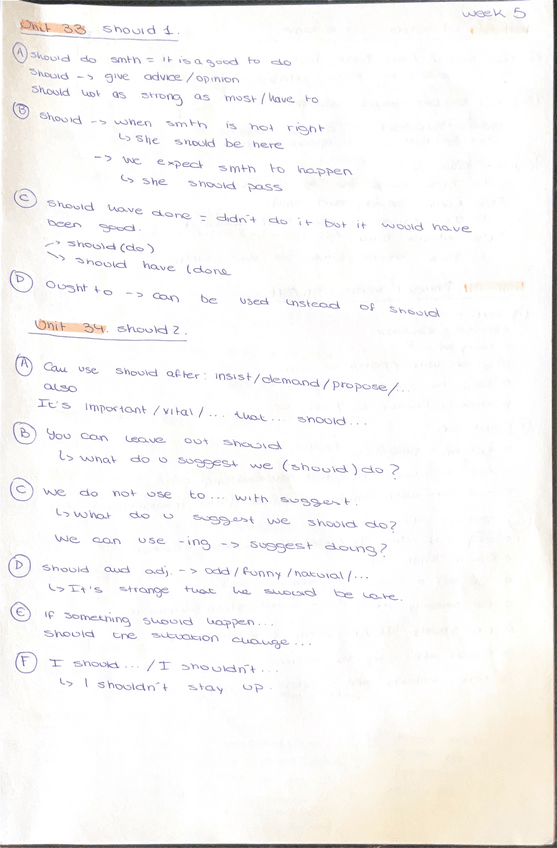 week 5
Unit 33 should 1.
(A) should do smth = it is a good to do
should -> give advice/opinion
should not as strong as must/have to
(B) should -> when smth is not right
↳ she should be here
-> we expect smth to happen
↳ she should pass
(C) should have done = didn't do it but it would have
been good.
-> should (do)
-> should have (done
(D) Ought to -> can be used instead of should
Unit 34. should 2.
(A) Can use should after: insist/demand/propose/...
also
It's important/vital/... that... should...
(B) You can leave out should
↳ what do u suggest we (should) do?
(C) we do not use to... with suggest.
↳ what do u suggest we should do?
we can use -ing -> suggest doing?
(D) should and adj. -> odd/funny/natural/...
↳ It's strange that he should be late.
(E) if something should happen...
should the situation change...
(F) I should... / I shouldn't...
↳ I shouldn't stay up.